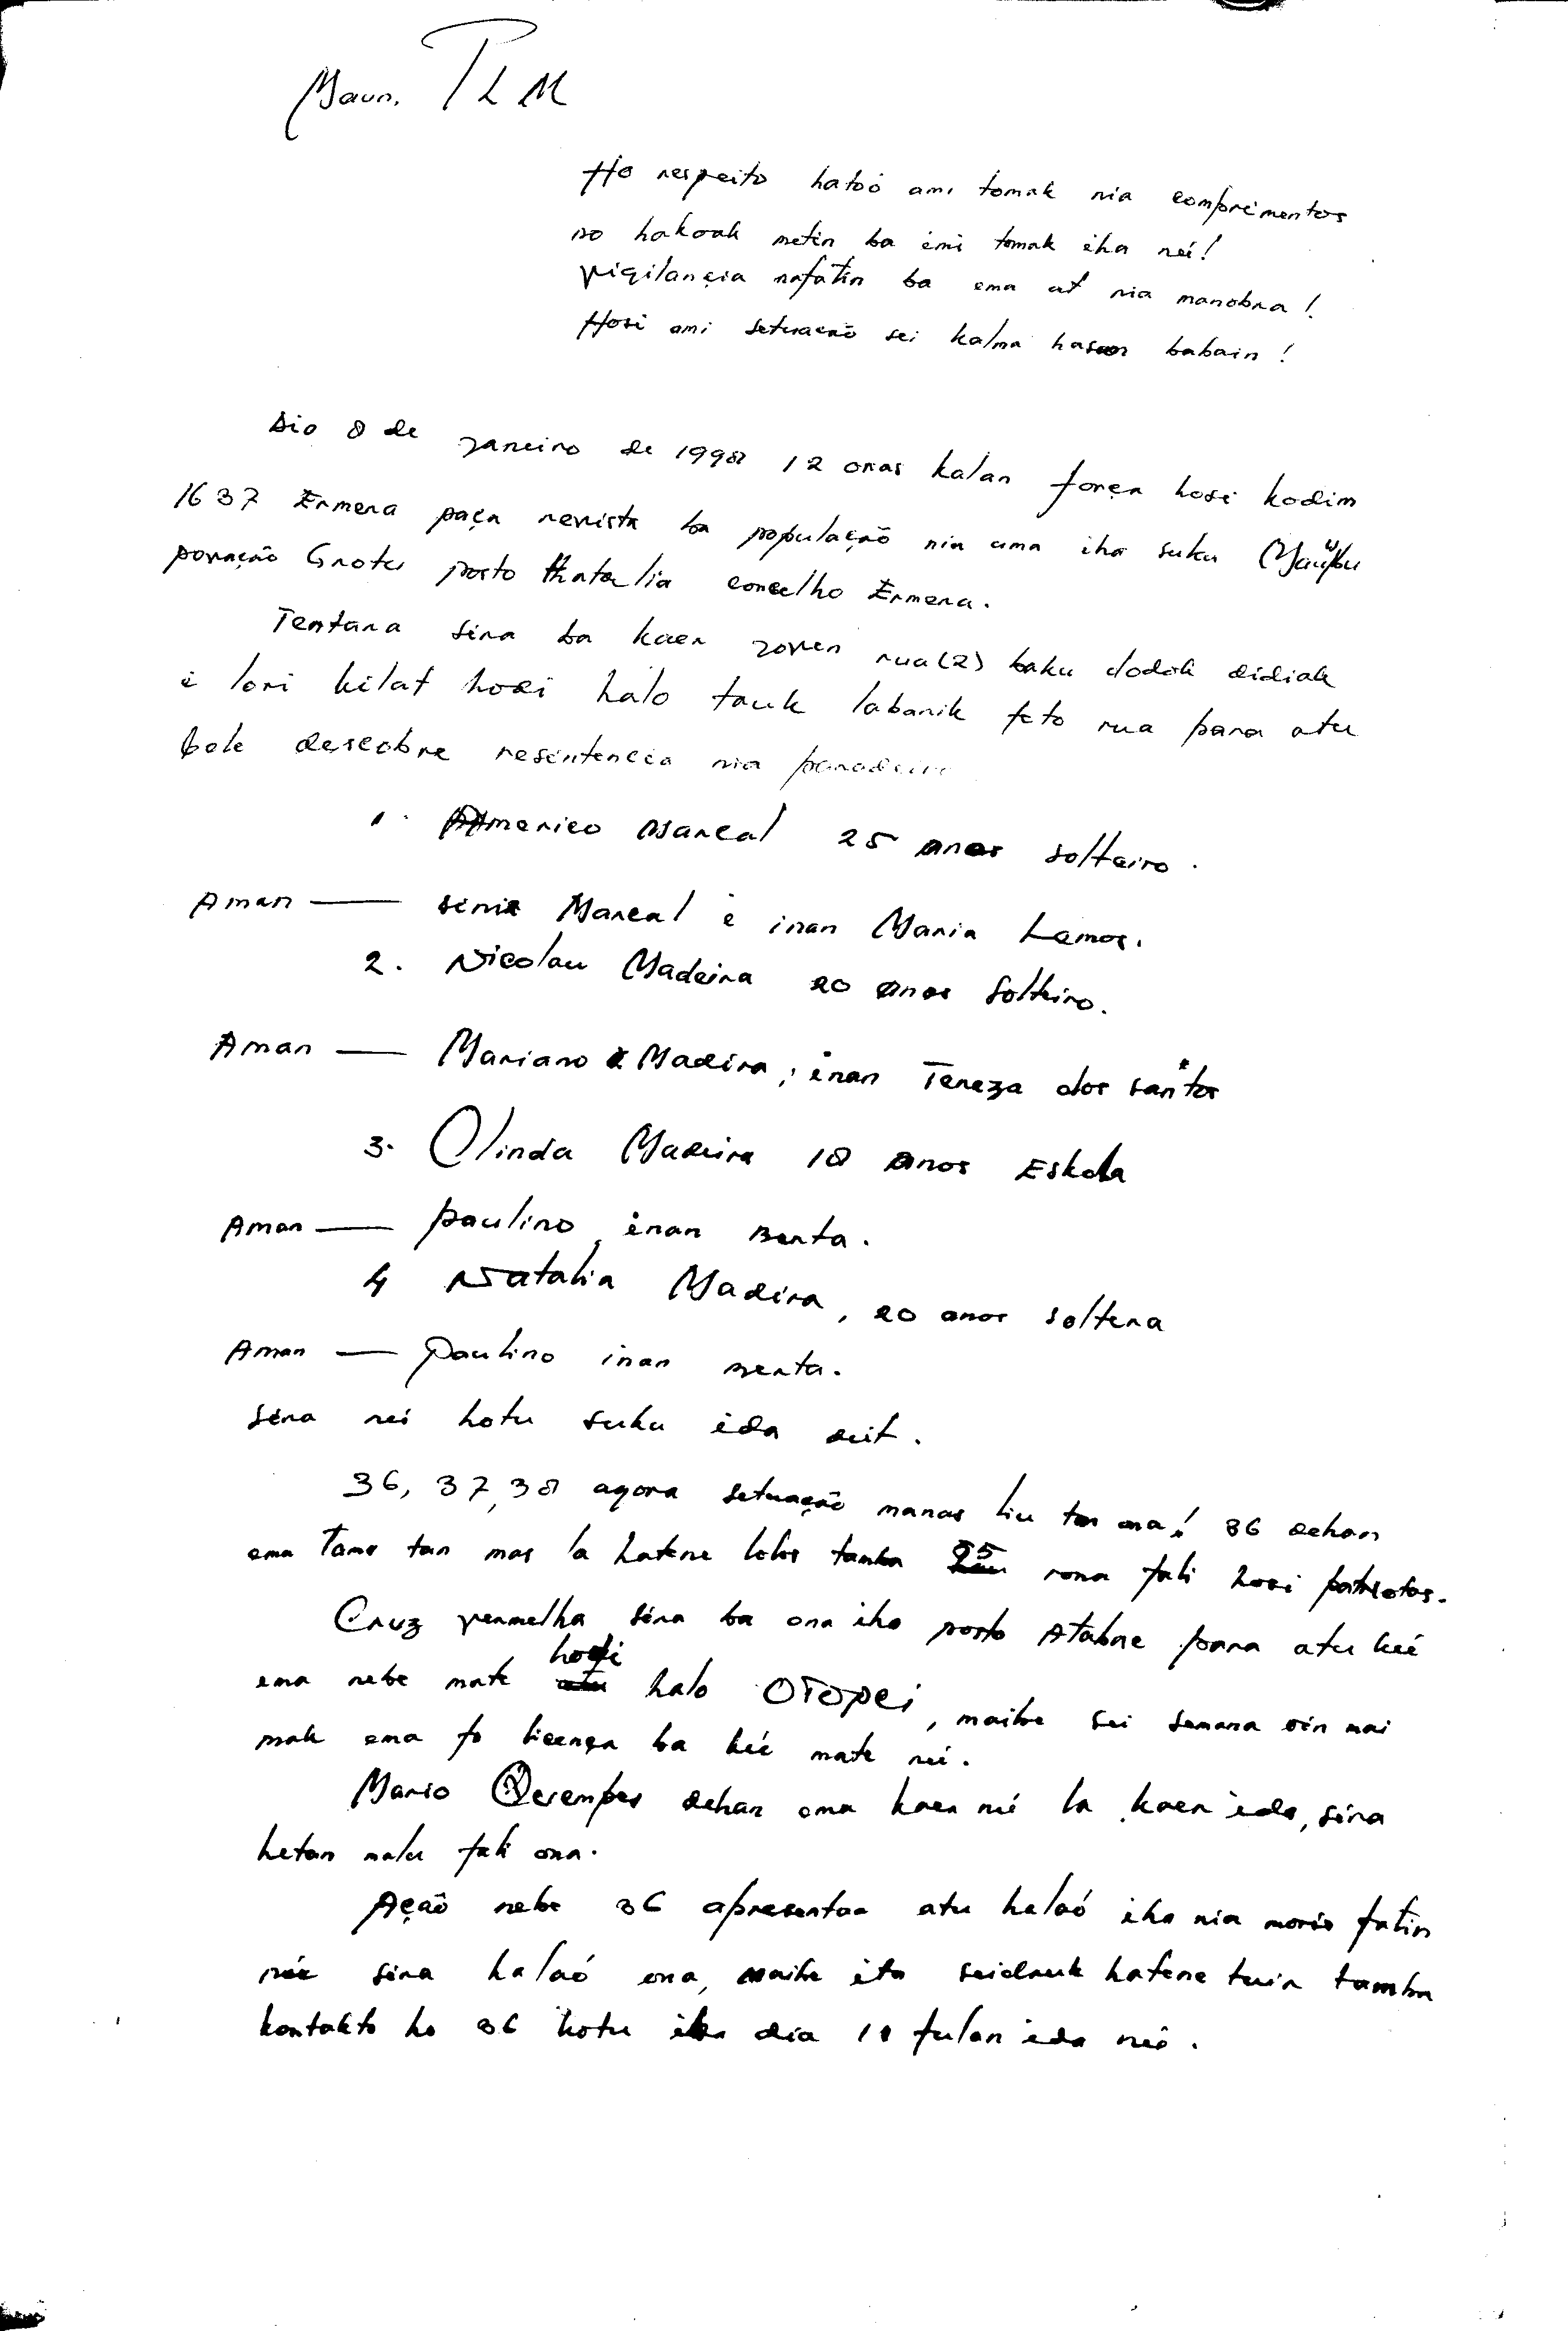 Maun. TLM
Ho respeito hatoó ami tomak nia comprimentos
no hakoak metin ba imi tomak iha neé!
Vigilançia nafatin ba ema at nia manobra!
Hosi ami setuacão sei kalma hasan babain!
Dia 8 de Janeiro de 1998 12 oras kalan força hosi kodim
1637 Ermera paça revista ba população nia uma iha suku
povação Grotu posto Hatolia concelho Ermera.
Tentara sira ba kaer joven rua (2) baku dodok didiak
i lori kilat hodi halo tauk labarik feto rua para atu
bele descobre resintencia nia paradeiro
1. Americo Marcal 25 anos solteiro.
Aman — Marcal e inan Maria Lemos.
2. Nicolau Madeira 20 anos Solteiro.
Aman — Mariano Madeira, inan Tereza dos santos
3. Olinda Madeira 18 anos Eskola
Aman — paulino, inan Berta.
4 Natalia Madeira, 20 anos soltera
Aman — Paulino inan Berta.
Sira neé hotu suku ida deit.
36, 37, 38 agora setuação manas liu ona! 36 dehan
ema Tama tan mas la hatene lolos tamba 35 rona fali hosi patriotas.
Cruz vermelha sira ba ona iha posto Atabae para atu keé
ema nebe mate hodi halo OTOPEi, maibe sei semana oin mai
mak ema fo licença ba keé mate neé.
Mario dehan ema kaer neé la kaer ida, sira
hetan malu fali ona.
Ação nebe 36 apresentar atu halaó iha nia moris fatin
neé sira halaó ona, maibe ita seidauk hatene tuir tamba
kontakto ho 36 hotu iha dia 10 fulan ida neé.